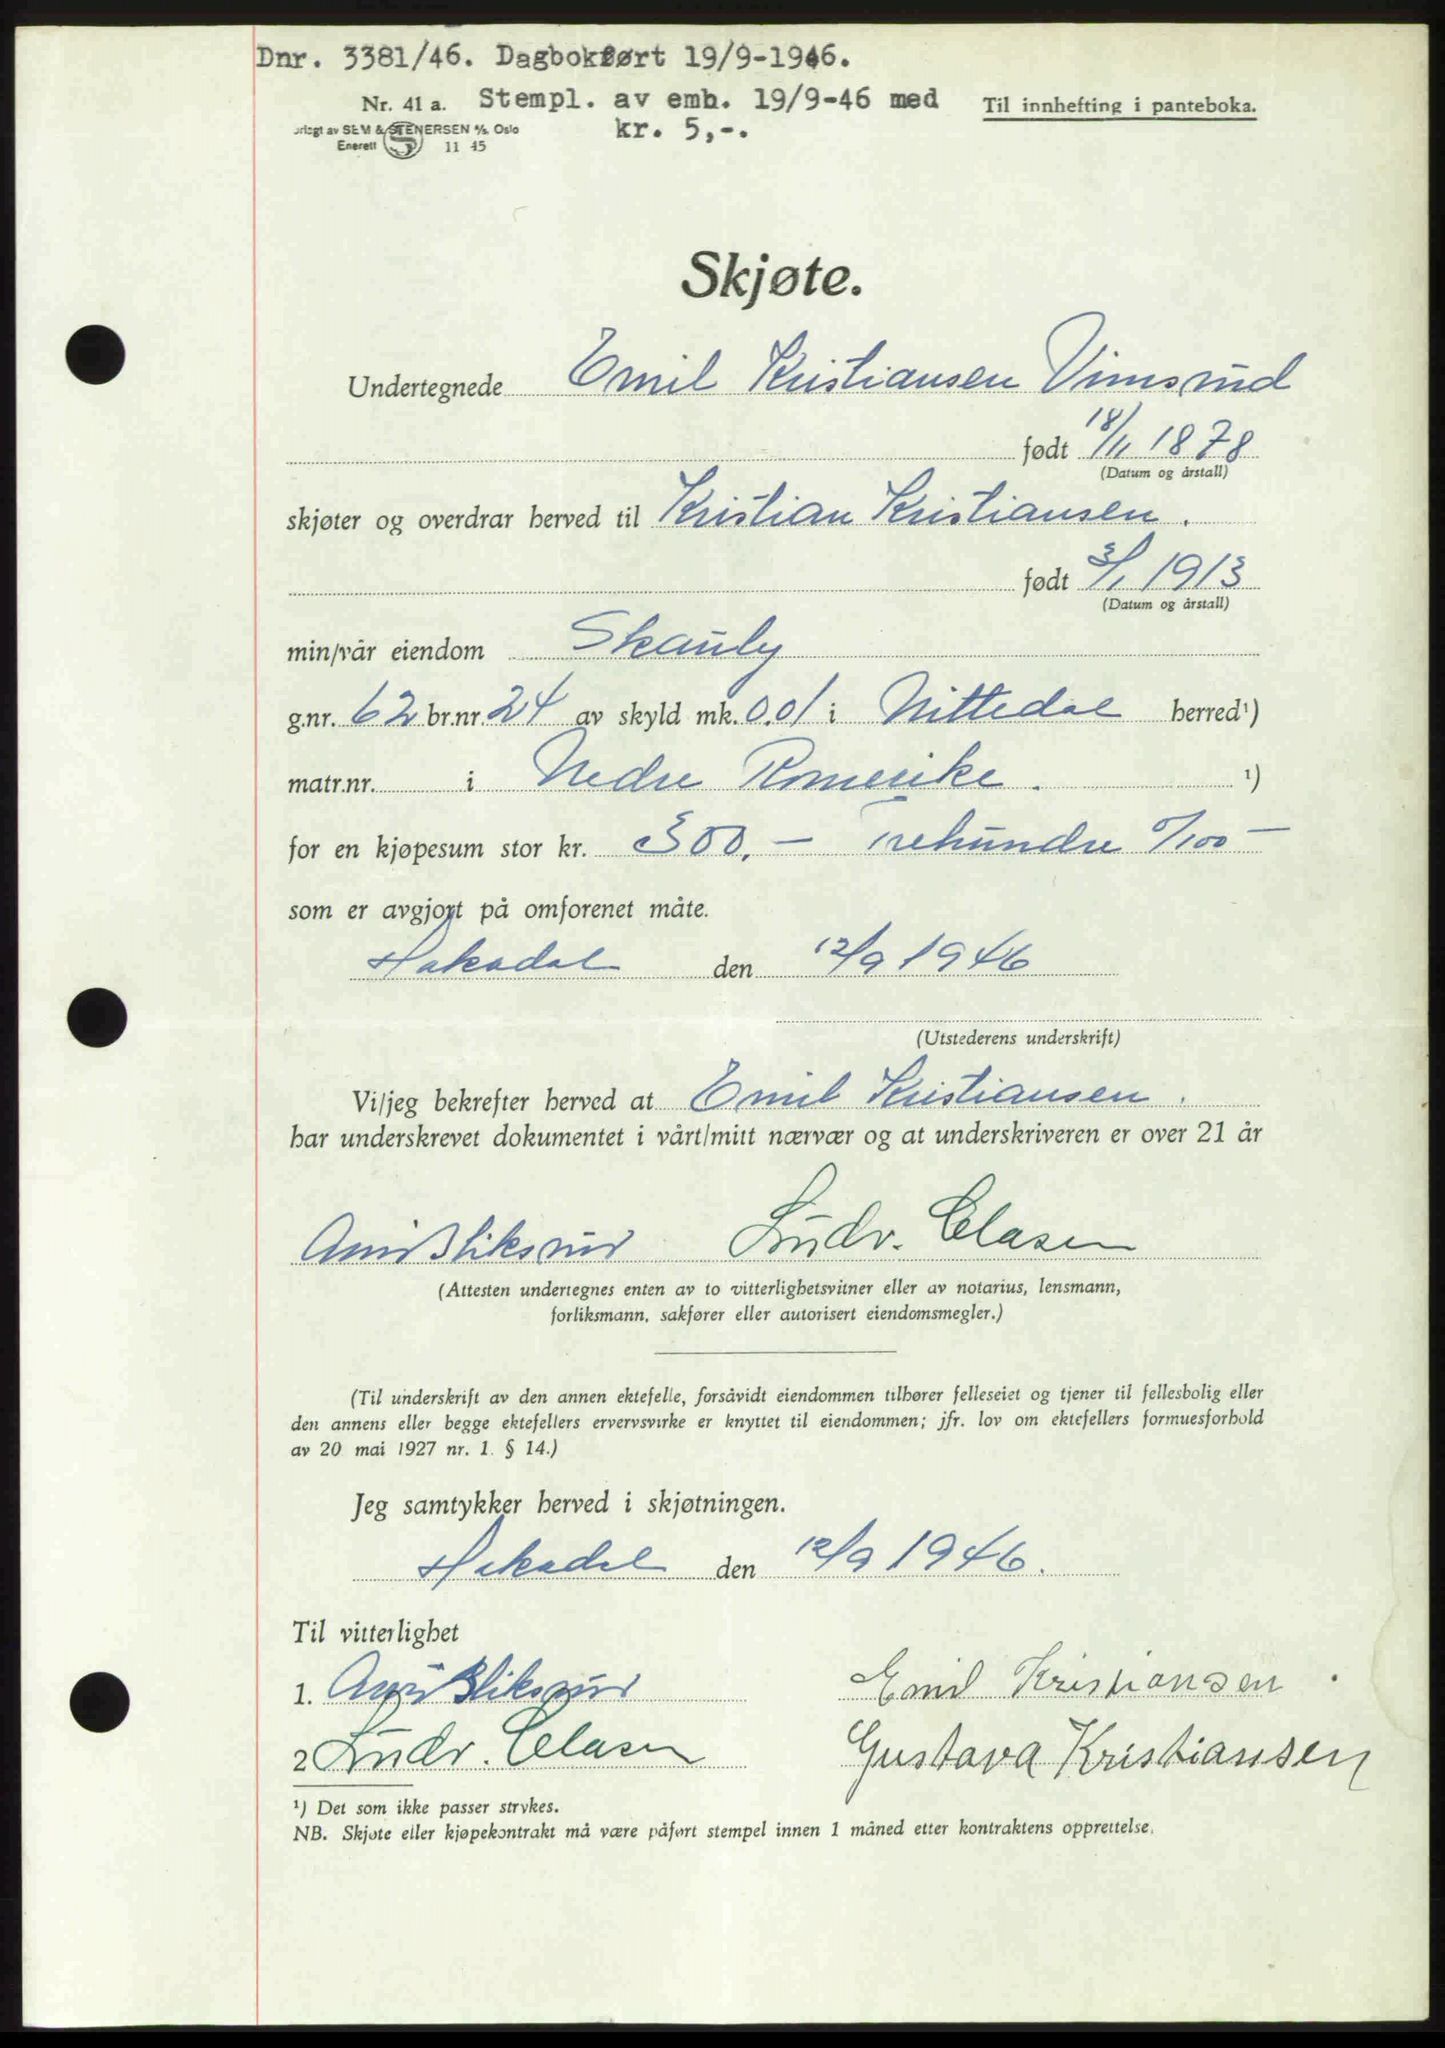 Dnr. 3381/46. Dagbokført 19/9-1946.
Nr. 41 a. Stempl. av emb. 19/9-46 med Til innhefting i panteboka.
orlagt av SEM & STENERSEN A/S. Oslo kr. 5,-.
Enerett S 11 45
Skjøte.
Undertegnede Emil Kristiansen Vimsrud
født 18/11 1878
(Datum og årstall)
skjøter og overdrar herved til Kristian Kristiansen.
født 3/1 1913
(Datum og årstall)
min/vår eiendom Skauly
g.nr. 62 br.nr. 24 av skyld mk. 0.01 i Nittedal herred¹)
matr.nr. i Nedre Romerike. ¹)
for en kjøpesum stor kr. 300.- Trehundre 0/100 -
som er avgjort på omforenet måte.
Hakadal den 12/9 1946
(Utstederens underskrift)
Vi/jeg bekrefter herved at Emil Kristiansen.
har underskrevet dokumentet i vårt/mitt nærvær og at underskriveren er over 21 år
Ludv. Clasen
(Attesten undertegnes enten av to vitterlighetsvitner eller av notarius, lensmann,
forliksmann, sakfører eller autorisert eiendomsmegler.)
(Til underskrift av den annen ektefelle, forsåvidt eiendommen tilhører felleseiet og tjener til fellesbolig eller
den annens eller begge ektefellers ervervsvirke er knyttet til eiendommen; jfr. lov om ektefellers formuesforhold
av 20 mai 1927 nr. 1. § 14.)
Jeg samtykker herved i skjøtningen.
Hakadal den 12/9 1946.
Til vitterlighet
1. Emil Kristiansen
2 Ludv. Clasen Gustava Kristiansen
¹) Det som ikke passer strykes.
NB. Skjøte eller kjøpekontrakt må være påført stempel innen 1 måned etter kontraktens opprettelse.